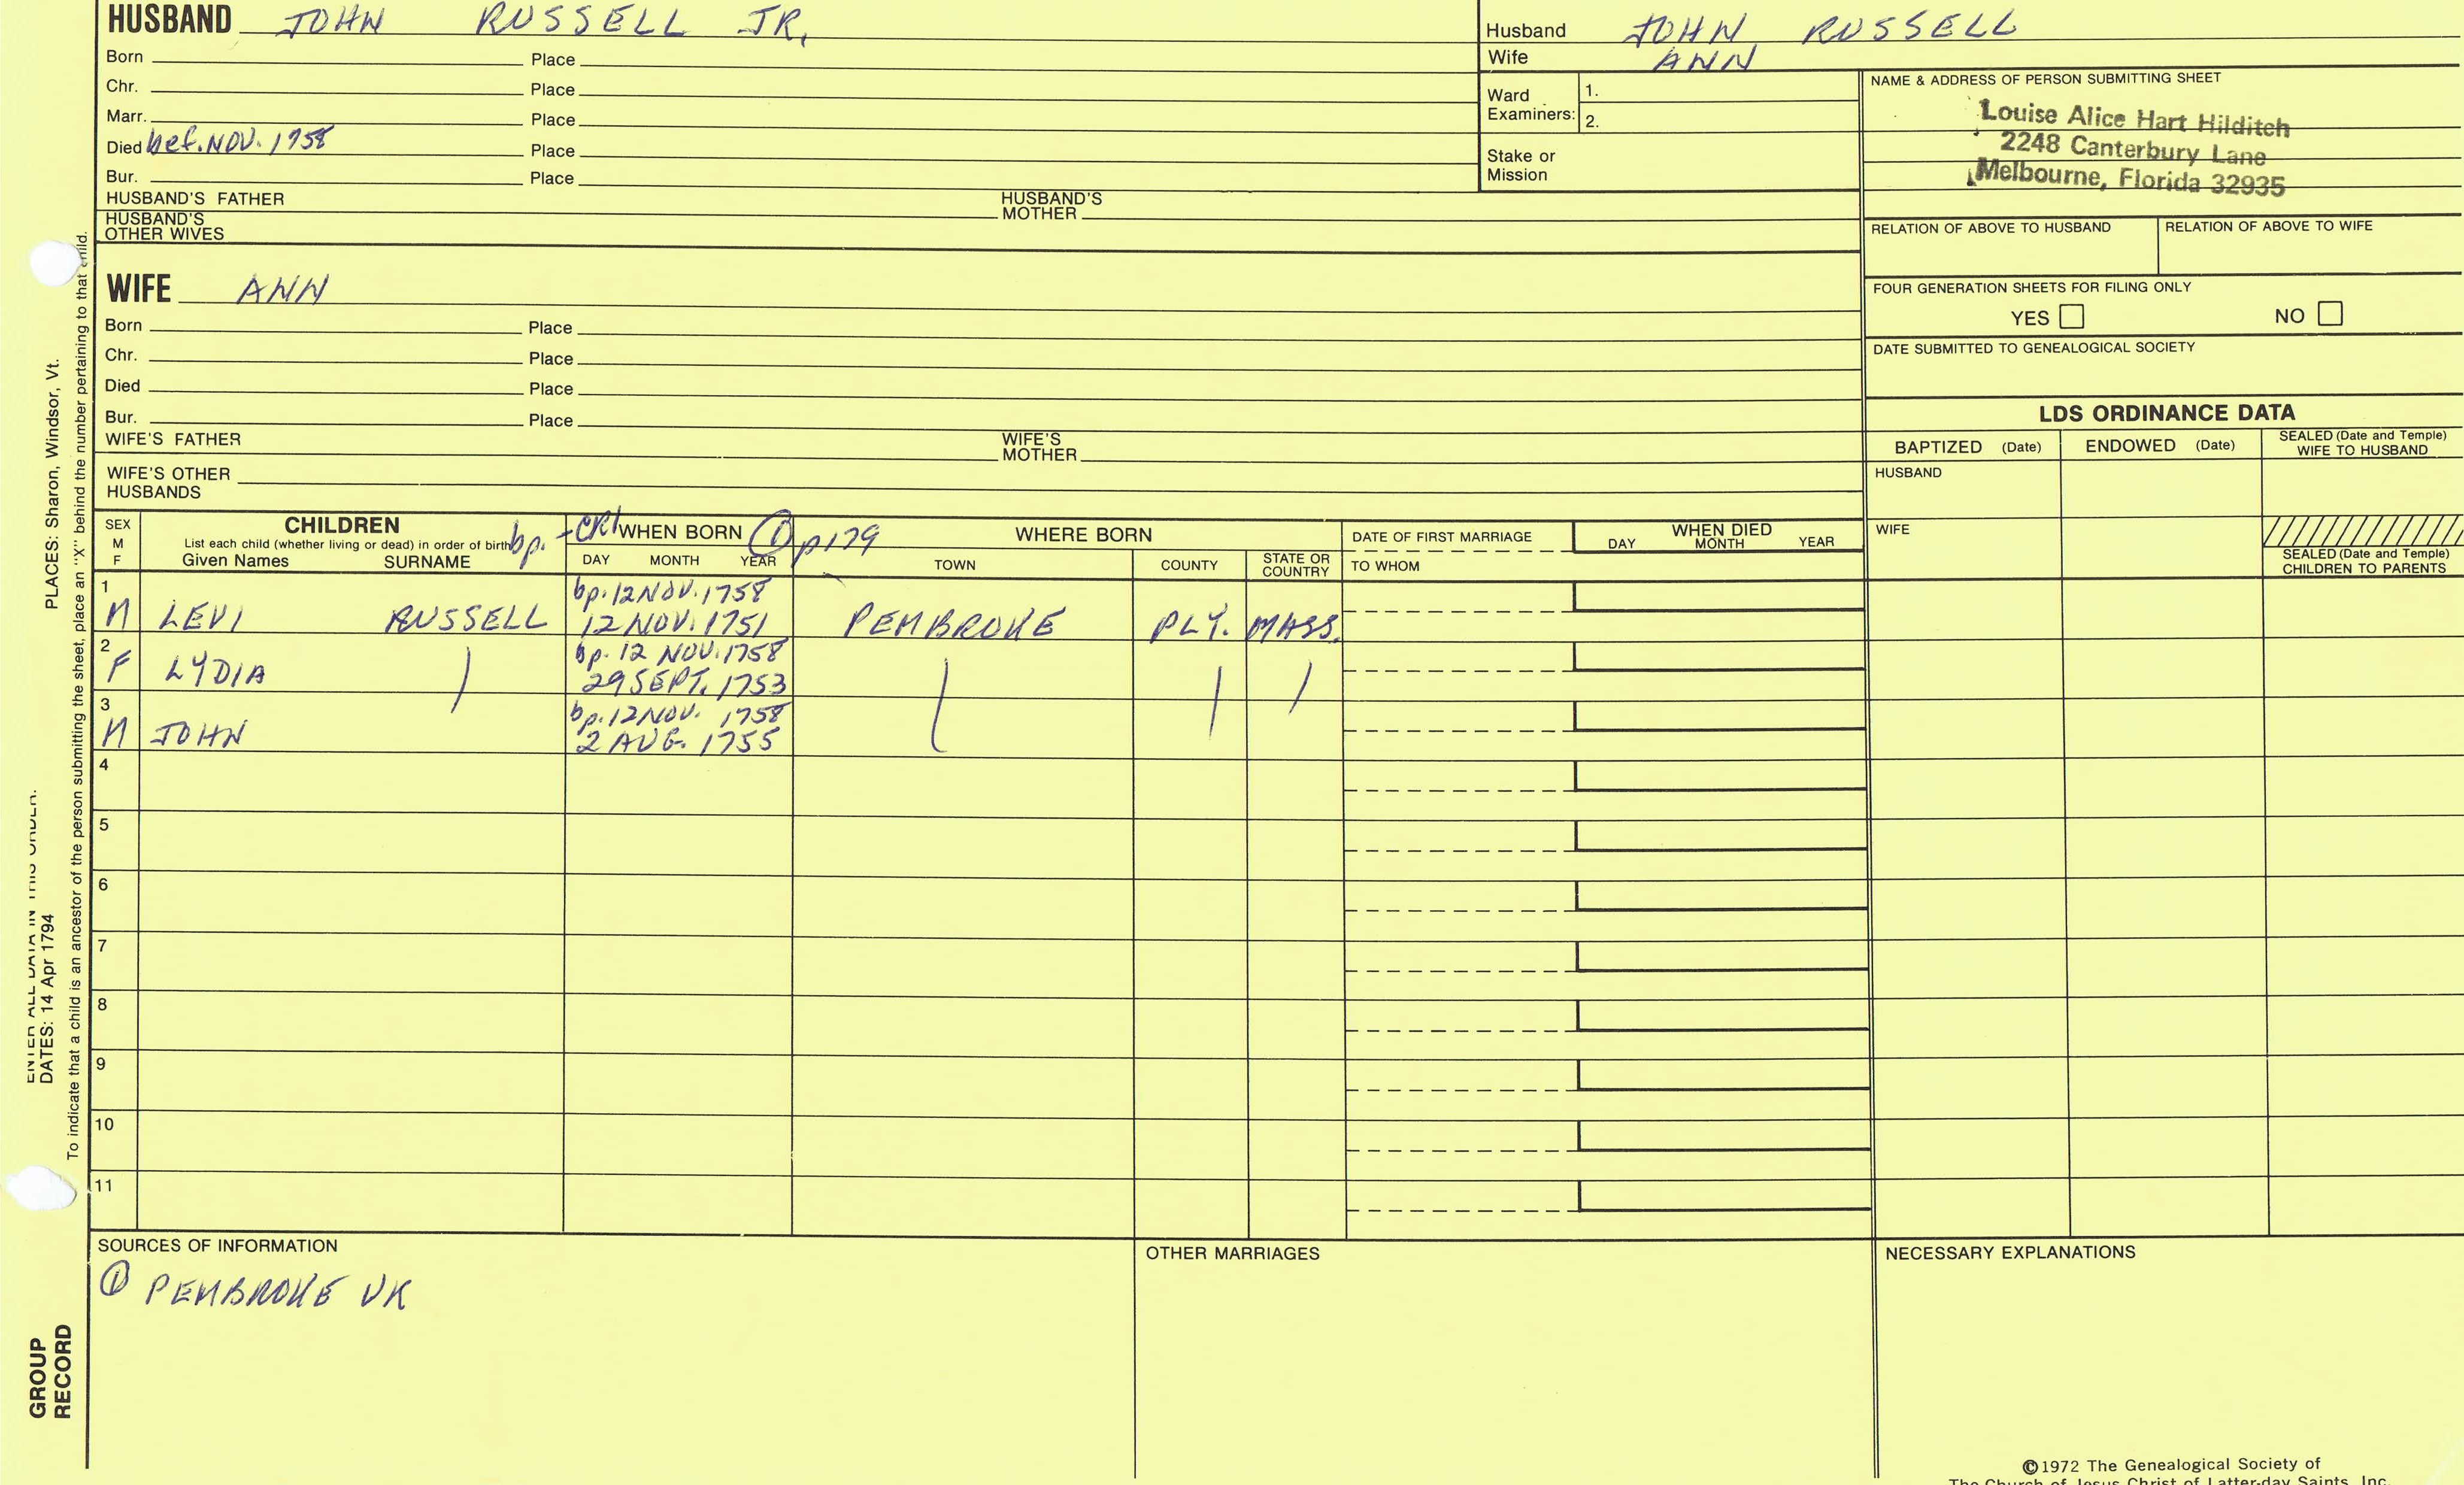 HUSBAND JOHN RUSSELL JR.
Born Place
Chr. Place
Marr. Place
Died bef. NOV. 1758 Place
Bur. Place
HUSBAND'S FATHER HUSBAND'S MOTHER
HUSBAND'S OTHER WIVES
Husband JOHN RUSSELL
Wife ANN
Ward Examiners: 1.
2.
Stake or Mission
NAME & ADDRESS OF PERSON SUBMITTING SHEET
Louise Alice Hart Hilditch
2248 Canterbury Lane
Melbourne, Florida 32935
RELATION OF ABOVE TO HUSBAND RELATION OF ABOVE TO WIFE
FOUR GENERATION SHEETS FOR FILING ONLY
YES NO
DATE SUBMITTED TO GENEALOGICAL SOCIETY
WIFE ANN
Born Place
Chr. Place
Died Place
Bur. Place
WIFE'S FATHER WIFE'S MOTHER
WIFE'S OTHER HUSBANDS
LDS ORDINANCE DATA
BAPTIZED (Date) ENDOWED (Date) SEALED (Date and Temple) WIFE TO HUSBAND
HUSBAND
WIFE
SEALED (Date and Temple) CHILDREN TO PARENTS
SEX M F
CHILDREN
List each child (whether living or dead) in order of birth
Given Names SURNAME
bp. - CR1 WHEN BORN ① p179
DAY MONTH YEAR
WHERE BORN
TOWN COUNTY STATE OR COUNTRY
DATE OF FIRST MARRIAGE
TO WHOM
WHEN DIED
DAY MONTH YEAR
1 bp. 12 NOV. 1758
M LEVI RUSSELL 12 NOV. 1751 PEMBROKE PLY. MASS.
2 bp. 12 NOV. 1758
F LYDIA 29 SEPT. 1753
3 bp. 12 NOV. 1758
M JOHN 2 AUG. 1755
4
5
6
7
8
9
10
11
SOURCES OF INFORMATION
① PEMBROKE VR
OTHER MARRIAGES
NECESSARY EXPLANATIONS
©1972 The Genealogical Society of
The Church of Jesus Christ of Latter-day Saints, Inc.
ENTER ALL DATA IN THIS ORDER:
DATES: 14 Apr 1794
PLACES: Sharon, Windsor, Vt.
To indicate that a child is an ancestor of the person submitting the sheet, place an "X" behind the number pertaining to that child.
GROUP
RECORD